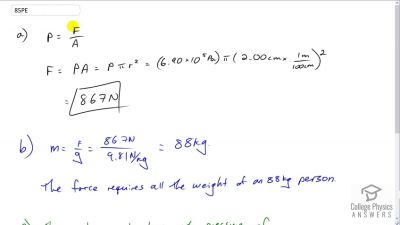 85PE
a) P = F/A
F = PA = Pπr² = (6.90 × 10⁵ Pa) π (2.00cm × 1m/100cm)²
= 867N
b) m = F/g = 867N / 9.81 N/kg = 88kg.
The force requires all the weight of an 88kg person.
College Physics
ANSWERS